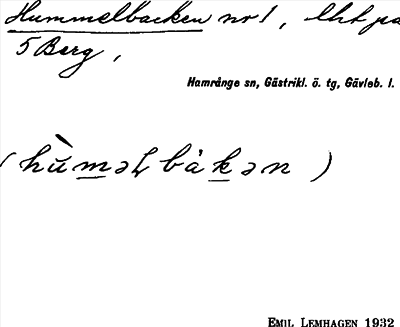 Hummelbacken nr 1, lht på
5 Berg,
Hamrånge sn, Gästrikl. ö. tg, Gävleb. l.
(hùməḷbàkən)
EMIL LEMHAGEN 1932